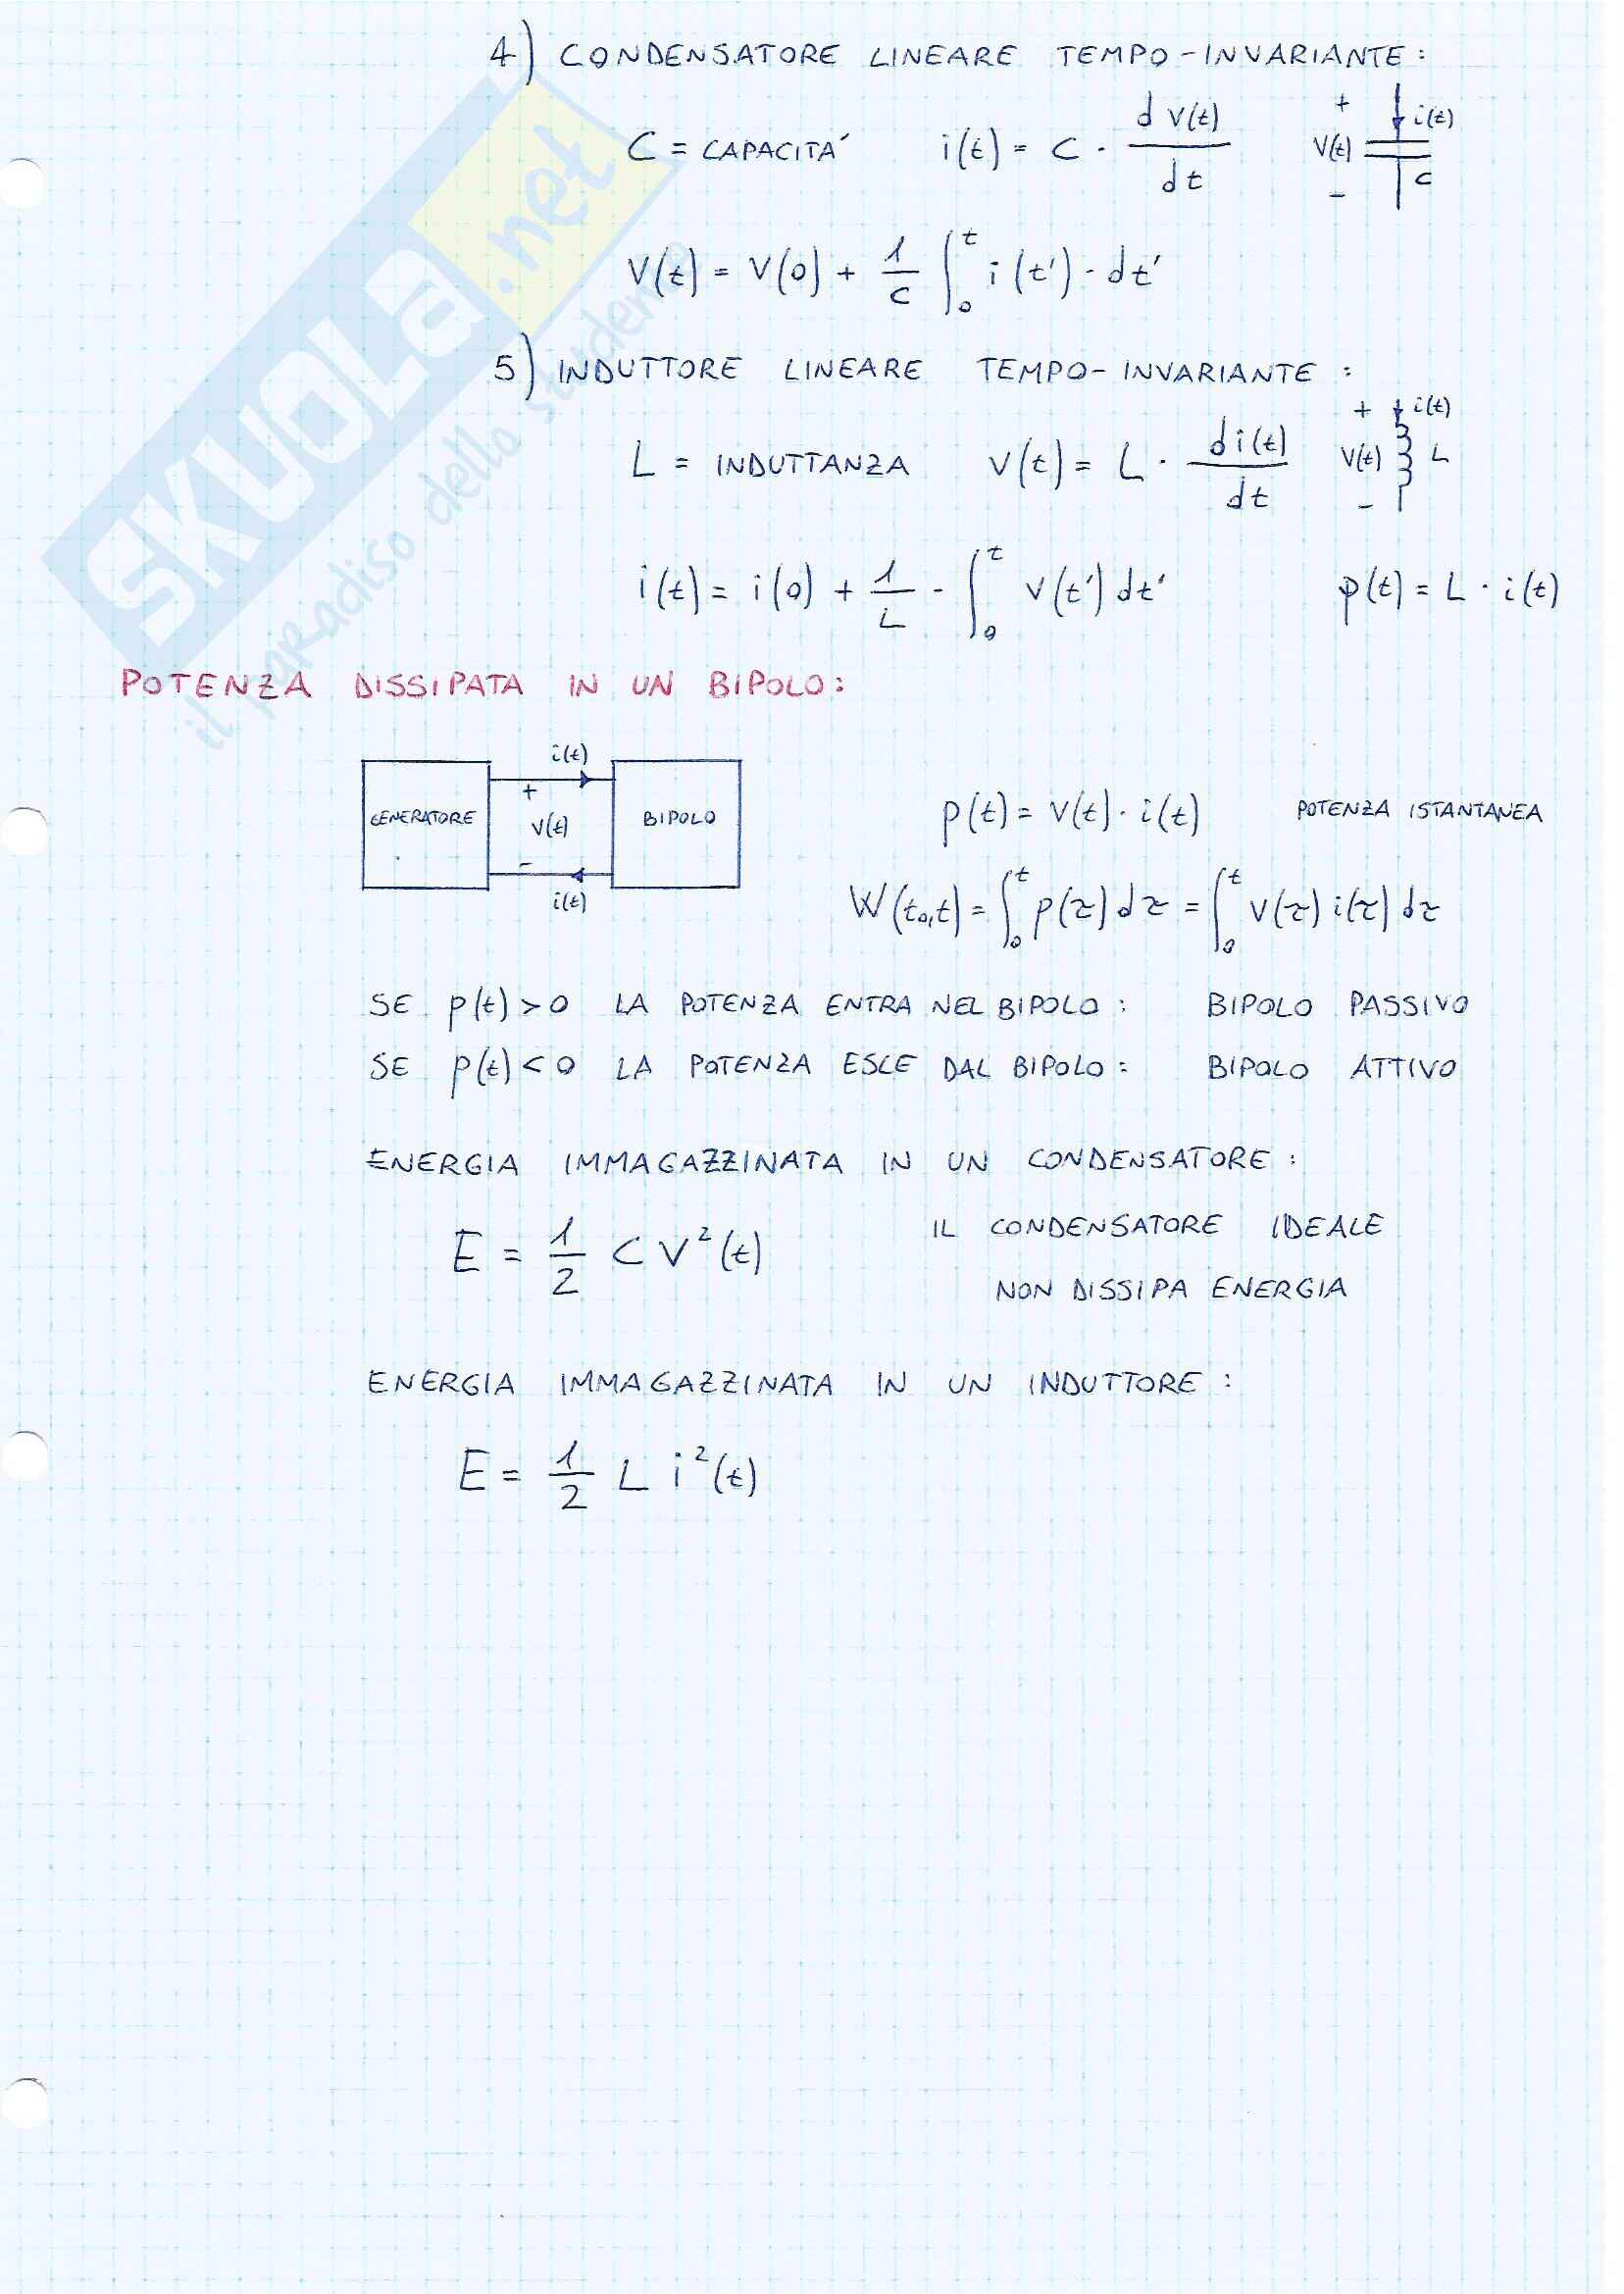 4) CONDENSATORE LINEARE TEMPO-INVARIANTE:
C = CAPACITA' i(t) = C · d v(t) / dt
+ i(t)
v(t)
- C
V(t) = V(0) + 1/C ∫₀ᵗ i(t') · dt'
5) INDUTTORE LINEARE TEMPO-INVARIANTE:
L = INDUTTANZA v(t) = L · di(t) / dt
+ i(t)
v(t) L
-
i(t) = i(0) + 1/L - ∫₀ᵗ v(t') dt' φ(t) = L · i(t)
POTENZA DISSIPATA IN UN BIPOLO:
i(t)
+
GENERATORE v(t) BIPOLO
-
i(t)
p(t) = v(t) · i(t) POTENZA ISTANTANEA
W(t₀,t) = ∫₀ᵗ p(τ) dτ = ∫₀ᵗ v(τ) i(τ) dτ
SE p(t) > 0 LA POTENZA ENTRA NEL BIPOLO: BIPOLO PASSIVO
SE p(t) < 0 LA POTENZA ESCE DAL BIPOLO: BIPOLO ATTIVO
ENERGIA IMMAGAZZINATA IN UN CONDENSATORE:
E = 1/2 C V²(t)
IL CONDENSATORE IDEALE
NON DISSIPA ENERGIA
ENERGIA IMMAGAZZINATA IN UN INDUTTORE:
E = 1/2 L i²(t)
SKUOLA.net
il paradiso dello studente